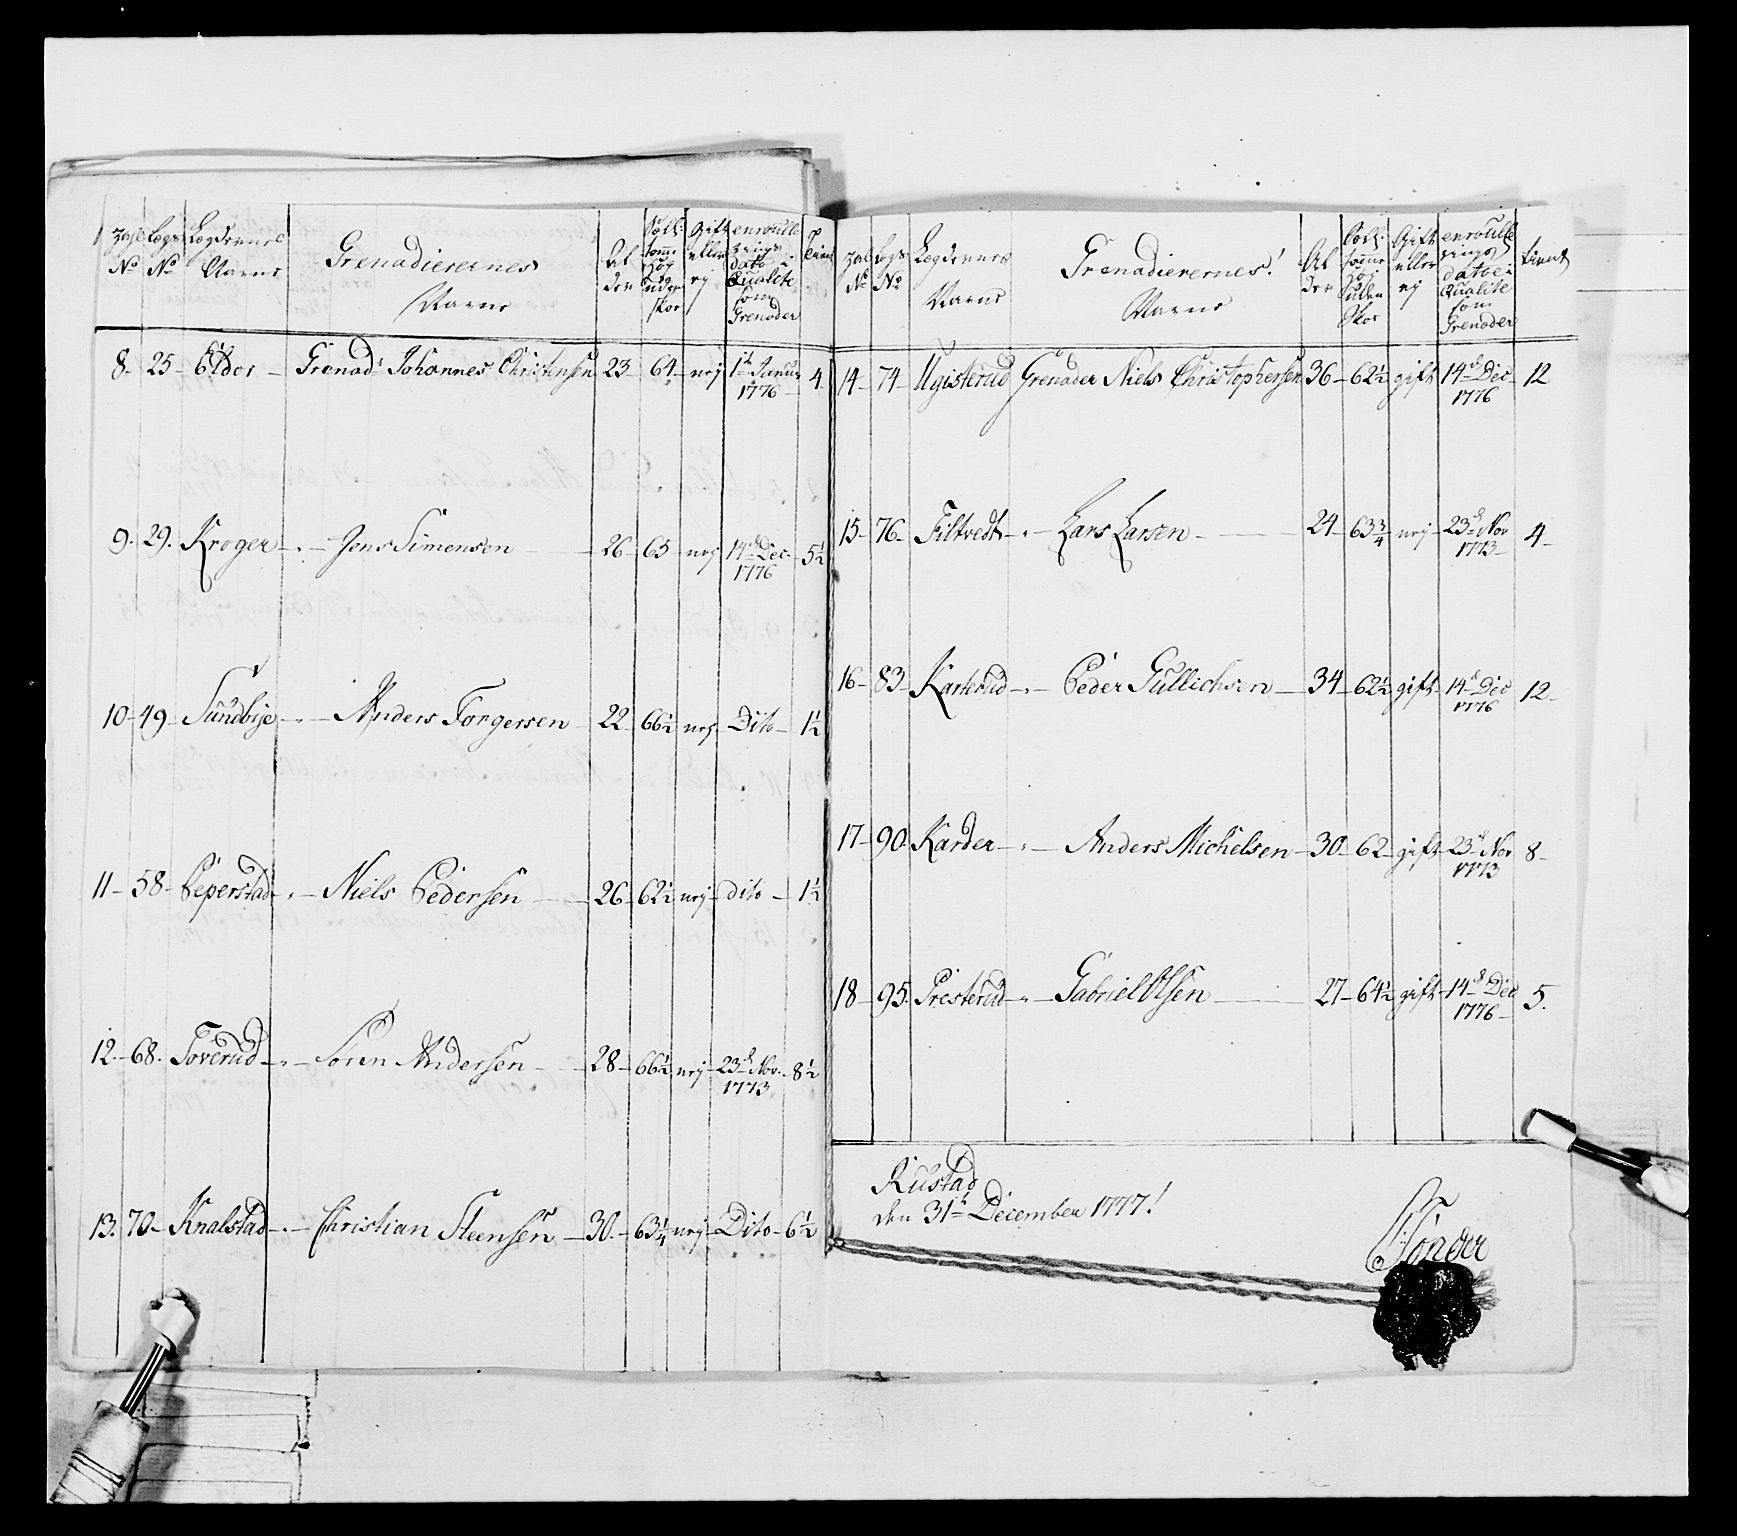 No No Lægdernes Navne Grenadierernes Navne Alder Gift eller ej enroulle rings dato i Qualite som Grenader
8 - 25 - Eldor - Grenad: Johannes Christensen 23 - 64 - nej 1te Januar 4
1776
9. 29. Kroger - " - Jens Simensen - 26 - 65 - nej 14d Dec 5½
1776
10 - 49 - Sundbye - " - Anders Torgersen - 22 - 66½ - nej - Dito - 1½
11 - 58 - Peperstad - " - Niels Pedersen - 26 - 62½ nej - dito - 1½
12. - 68. Toverud - " - Sören Andersen - 28 - 66½ nej - 23d Nov. 8½
1773
13. 70 - Knalstad - " - Christian Steensen - 30 - 63¼ nej - Dito - 6½
No No Lægdernes Navne Grenadierernes! Navne Alder Gift eller ej enroulle rings datoe i Qualite som Grenader tient
14 - 74 - Ugisterud Grenader Niels Christophersen 36 - 62½ gift 14d Dec 12
1776
15 - 76 - Filtvedt - " - Lars Larsen - 24 - 63¾ - nej - 23d Nov 4 -
1773 -
16 - 83 - Karterud - " - Peder Gullichsen - 34 - 62½ gift - 14d Dec 12 -
1776
17 - 90. Karder - " - Anders Michelsen - 30 - 62 - gift - 23d Nov 8 -
1773
18 - 95. Presterud - " - Gabriel Olsen - 27 - 64½ gift - 14d Dec 5.
1776 -
Rustad
den 31te December 1777!
Tönder